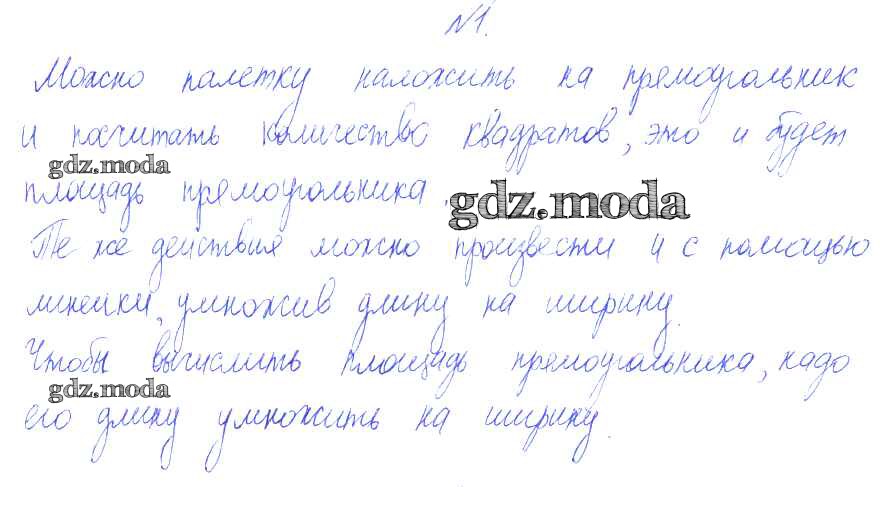 №1.
Можно палетку наложить на прямоугольник
и посчитать количество квадратов, это и будет
gdz.moda
площадь прямоугольника.
gdz.moda
Те же действия можно произвести и с помощью
линейки, умножив длину на ширину.
Чтобы вычислить площадь прямоугольника, надо
gdz.moda
его длину умножить на ширину.